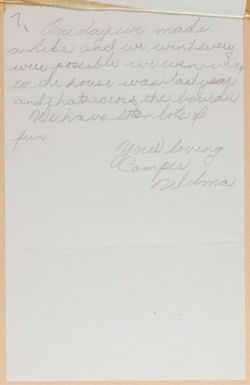 2,
One day we made
a hike and we went every
were possible we even
to the house was last year
and thats across the
We have lots on lots of
fun.
Your loving
Camper
Wilma